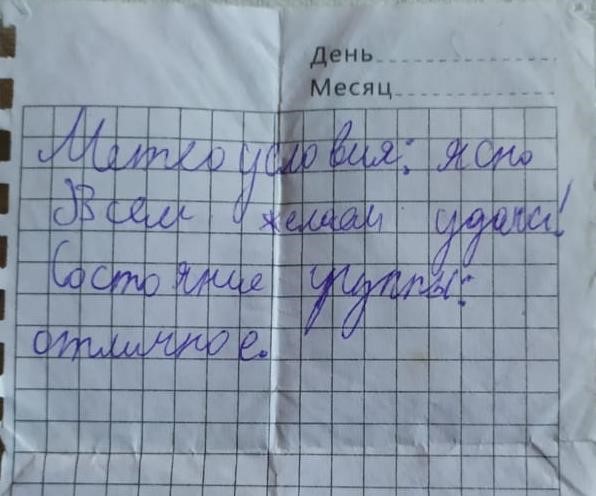 День
Месяц
Метео условия: ясно
Всем желаем удачи!
Состояние группы:
отличное.